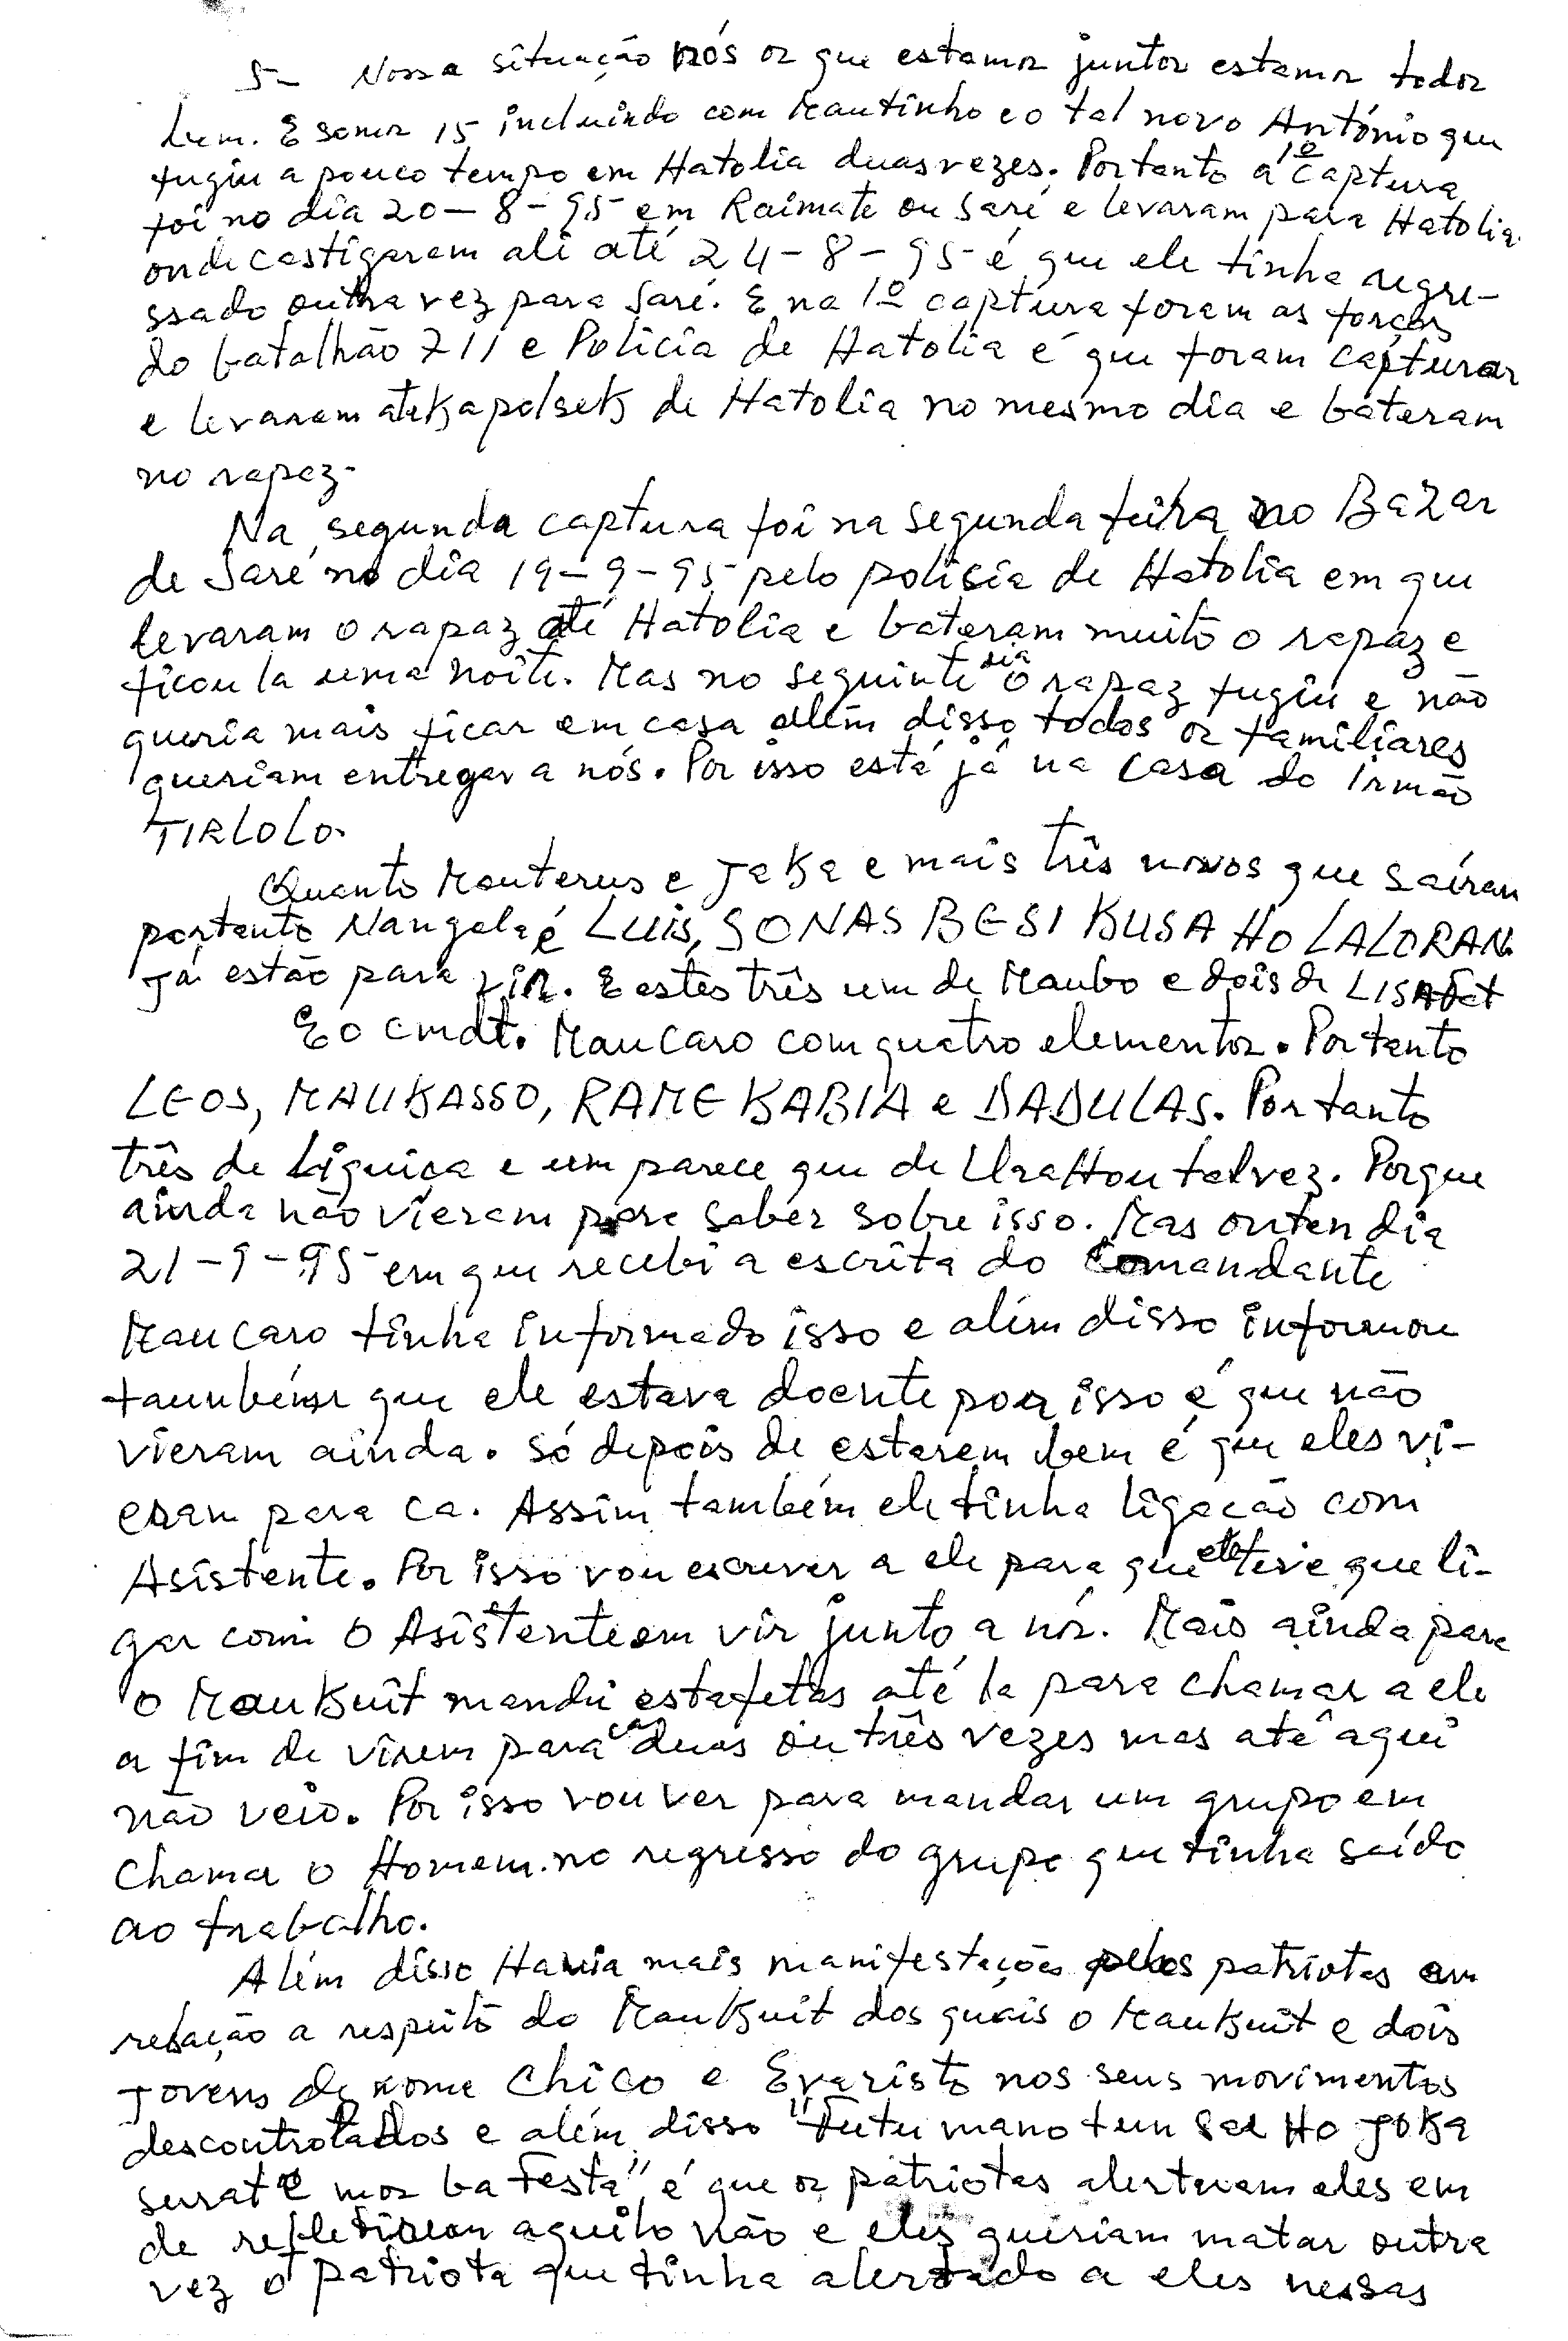 5- Nossa situação nós os que estamos juntos estamos todos
bem. E somos 15 incluindo com Mautinho e o tal novo António que
fugiu a pouco tempo em Hatolia duas vezes. Portanto a 1º captura
foi no dia 20-8-95 em Raimate ou Saré e levaram para Hatolia.
onde castigaram ali até 24-8-95 é que ele tinha regre-
ssado outra vez para Saré. E na 1º captura foram as forças
do batalhão 711 e Policia de Hatolia é que foram capturar
e levaram até Kapolsek de Hatolia no mesmo dia e bateram
no rapaz.
Na segunda captura foi na segunda feira no Bazar
de Saré no dia 19-9-95 pelo polisia de Hatolia em que
levaram o rapaz até Hatolia e bateram muito o rapaz e
ficou la uma noite. Mas no seguinte dia o rapaz fugiu e não
queria mais ficar em casa além disso todos os familiares
queriam entregar a nós. Por isso está já na casa do irmão
TIRLOLO.
Quanto Mauterus e Jaka e mais três novos que saíram
portanto Nangala é LUIS, SONAS BESI KUSA HO LALORAN.
Já estão para vir. E estes três um de Maubo e dois de
E o cmdt. Maucaro com quatro elementos. Portanto
LEOS, MAUKASSO, RAME KABIA e DADULAS. Portanto
três de Liquiça e um parece que de UraHou talvez. Porque
ainda não vieram para saber sobre isso. Mas onten dia
21-9-95 em que recebi a escrita do Comandante
Maucaro tinha informado isso e além disso informou
taumbém que ele estava doente por isso é que não
vieram ainda. Só depois de estarem bem é que eles vi-
eram para ca. Assim também ele tinha ligação com
Asistente. Por isso vou escrever a ele para que ele teve que li-
gar com o Asistente em vir junto a nós. Mais ainda para
o MauKuit mandei estafetas até la para chamar a ele
a fim de virem para ca duas ou três vezes mas até aqui
não veio. Por isso vou ver para mandar um grupo em
chamar o Homem. no regresso do grupo que tinha saído
ao trabalho.
Além disso Havia mais manifestações pelos patriotas em
relação a respeito do MauKuit dos quais o MauKuit e dois
Jovens de nome Chico e Evaristo nos seus movimentos
descontrolados e além disso "Tutu mano tun sae Ho JoKa
surat e mos ba Festa" é que os patriotas alertaram eles em
de refletirem aquilo não e eles queriam matar outra
vez o patriota que tinha alertado a eles nessas